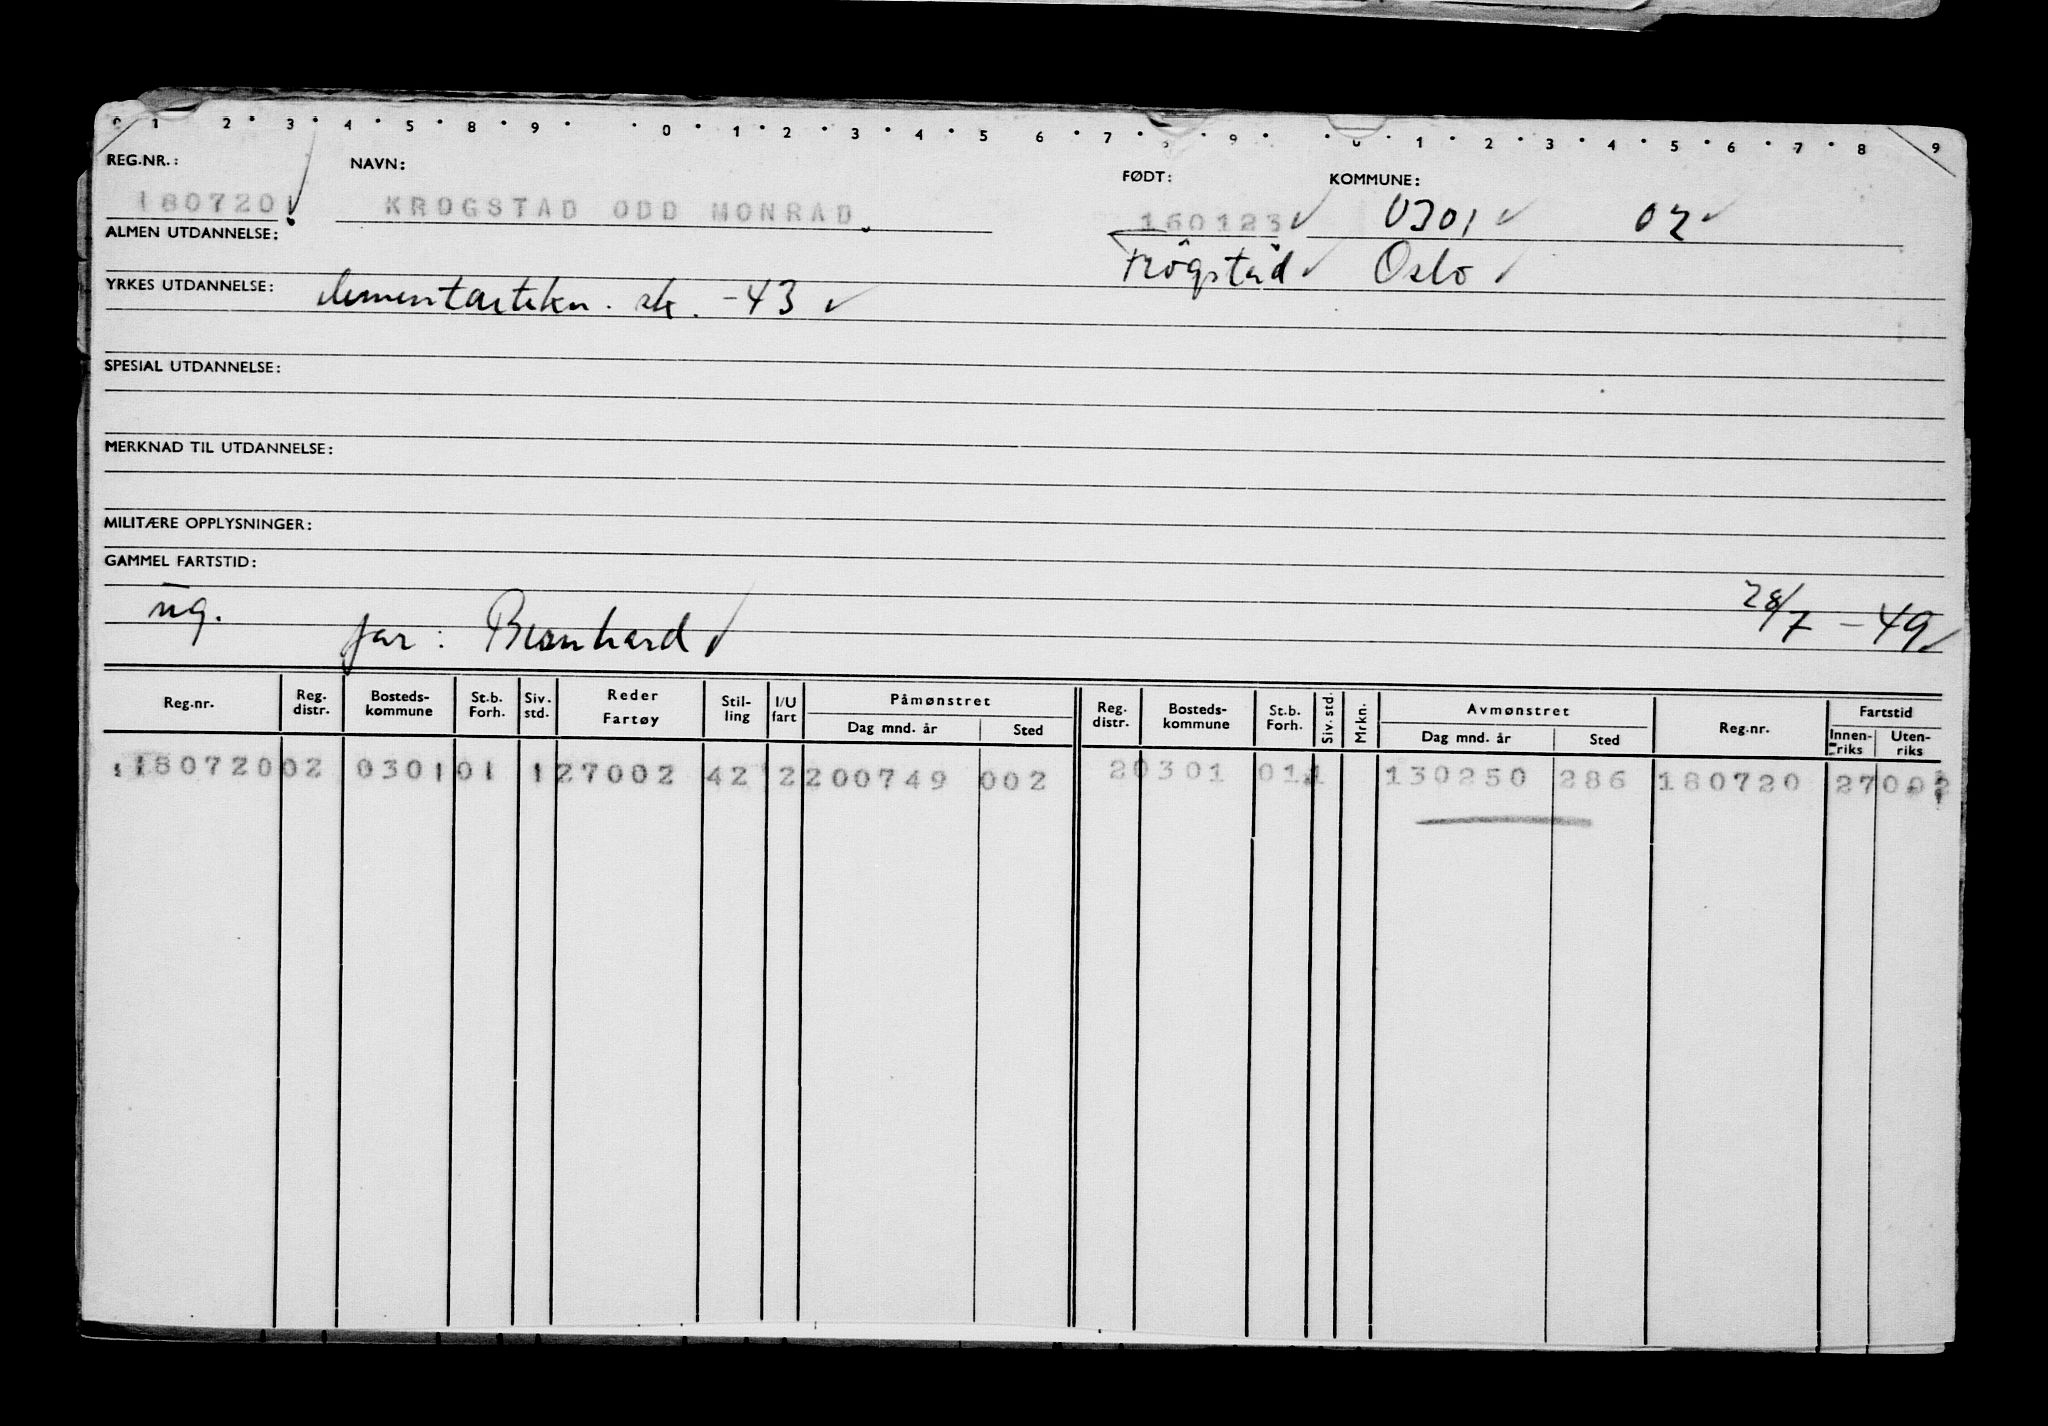 0 1 2 3 4 5 8 9 0 1 2 3 4 5 6 7 9 1 2 3 4 5 6 7 8 9
REG.NR.: NAVN: FØDT: KOMMUNE:
180720 KROGSTAD ODD MONRAD 160123 0301 02
ALMEN UTDANNELSE: Trögstad Oslo
YRKES UTDANNELSE: elementartekn. sk. -43
SPESIAL UTDANNELSE:
MERKNAD TIL UTDANNELSE:
MILITÆRE OPPLYSNINGER:
GAMMEL FARTSTID:
ug. far: Bernhard 28/7 -49
Reg.nr. Reg. distr. Bosteds- kommune St.b. Forh. Siv. std. Reder Fartøy Stil- ling I/U fart Påmønstret Dag mnd. år Sted Reg. distr. Bosteds- kommune St.b. Forh. Siv. std. Mrkn. Avmønstret Dag mnd. år Sted Reg.nr. Fartstid Innen- riks Uten- riks
180720 02 0301 01 1 27002 42 2 200749 002 2 0301 01 1 130250 286 180720 27002